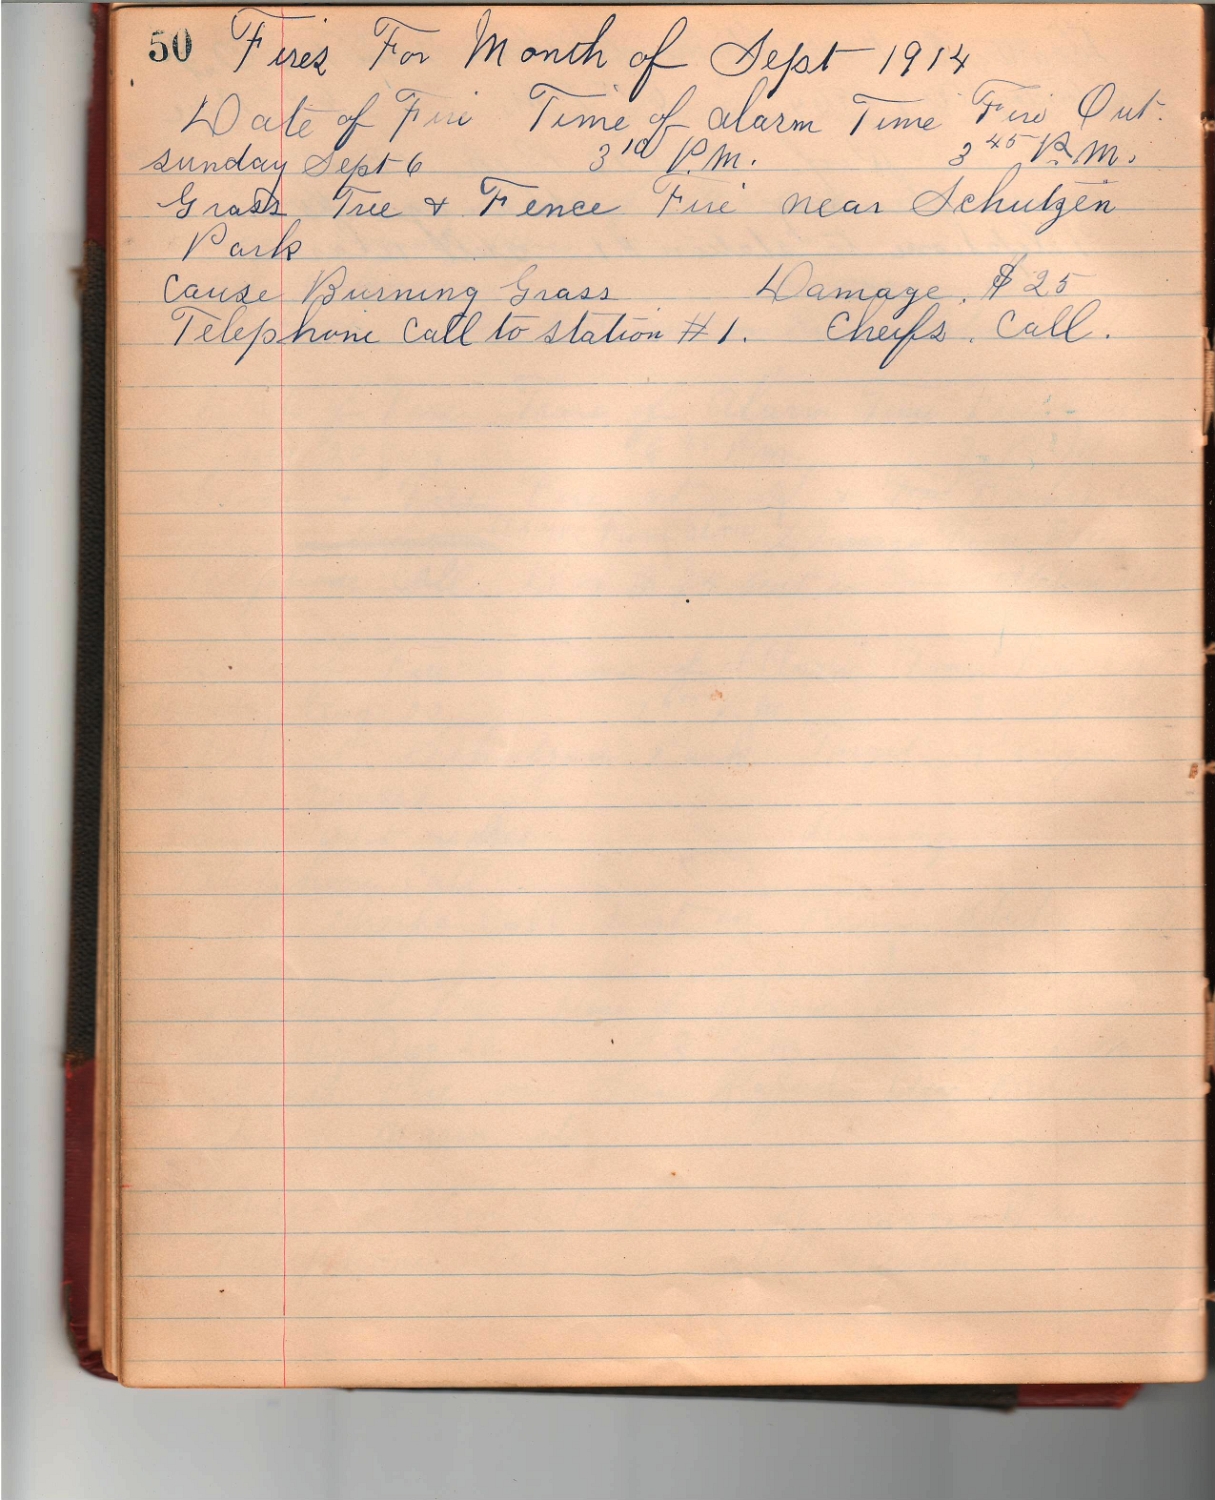 50 Fires For Month of Sept 1914
Date of Fire Time of alarm Time Fire Out.
Sunday Sept 6 3 10 P.M. 3 45 P.M.
Grass Tree & Fence Fire near Schutzen
Park
Cause Burning Grass Damage. $25
Telephone Call to Station #1. Cheifs. Call.